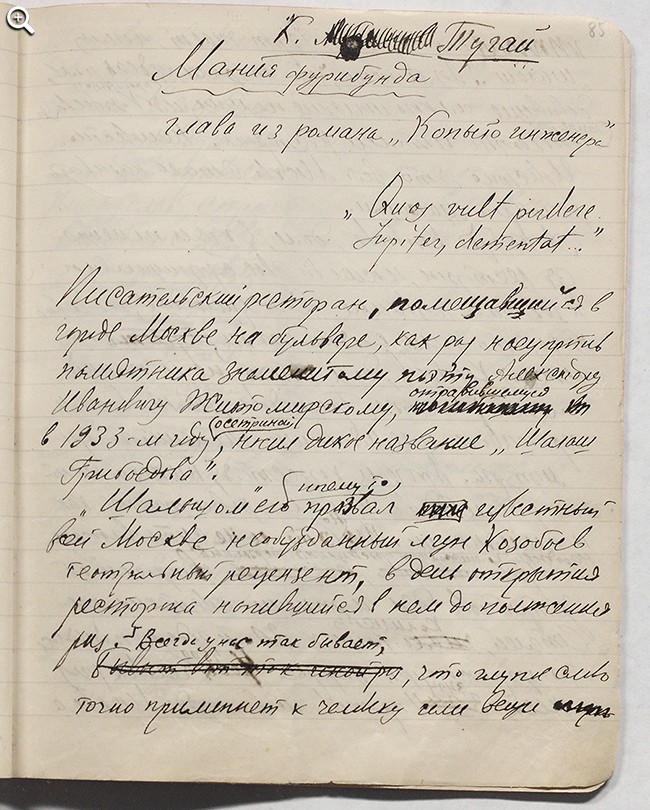 85
К. Тугай
Мания фурибунда
глава из романа „Копыто инженера"
„Quos vult perdere
Jupiter, dementat..."
Писательский ресторан, помещавшийся в
городе Москве на бульваре, как раз насупротив
памятника знаменитому поэту Александру
отравившемуся
Ивановичу Житомирскому,
осетриной
в 1933-м году, носил дикое название „Шалаш
Грибоедова".
почему-то
„Шалашом" его прозвал известный
всей Москве необузданный лгун Козобоев
театральный рецензент, в день открытия
ресторана напившийся в нем до положения
риз. Всегда у нас так бывает,
, что глупое слово
точно прилипнет к человеку или вещи